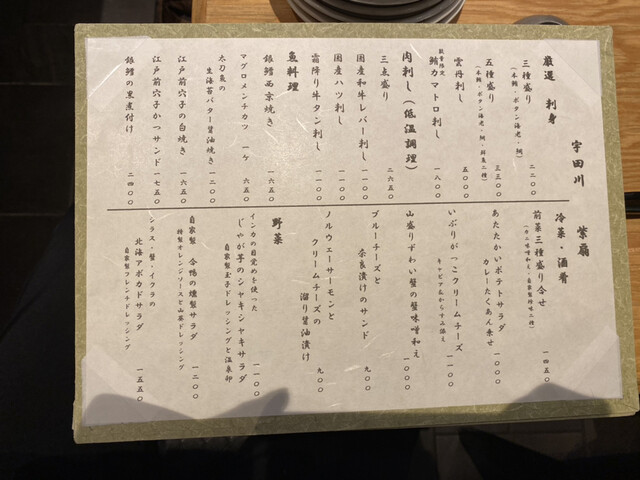 宇田川 紫扇
厳選 刺身
三種盛り
(本鮪・ボタン海老・鯛) 二二〇〇
五種盛り
(本鮪・ボタン海老・鯛・鮮魚二種) 三三〇〇
雲丹刺し 五〇〇〇
数量限定
鮪カマトロ刺し 一八〇〇
肉刺し(低温調理)
三点盛り 二六五〇
国産和牛レバー刺し 一一〇〇
国産ハツ刺し 一一〇〇
霜降り牛タン刺し 一一〇〇
魚料理
銀鱈西京焼き 一六五〇
マグロメンチカツ 一ケ 六五〇
太刀魚の
生海苔バター醤油焼き 一二〇〇
江戸前穴子の白焼き 一六五〇
江戸前穴子かつサンド 一七五〇
銀鱈の黒煮付け 二四〇〇
冷菜・酒肴
前菜三種盛り合せ
一四五〇
あたたかいポテトサラダ
カレーたくあん乗せ 一〇〇〇
いぶりがっこクリームチーズ
キャビア&からすみ添え 一一〇〇
山盛りずわい蟹の蟹味噌和え 一〇〇〇
ブルーチーズと
奈良漬けのサンド 九〇〇
ノルウェーサーモンと
クリームチーズの
溜り醤油漬け 九〇〇
野菜
インカの目覚めを使った
じゃが芋のシャキシャキサラダ
自家製玉子ドレッシングと温泉卵 一一〇〇
自家製 合鴨の燻製サラダ
特製オレンジソースと山葵ドレッシング 一二〇〇
シラス・蟹・イクラの
北海アボカドサラダ
自家製フレンチドレッシング 一五五〇